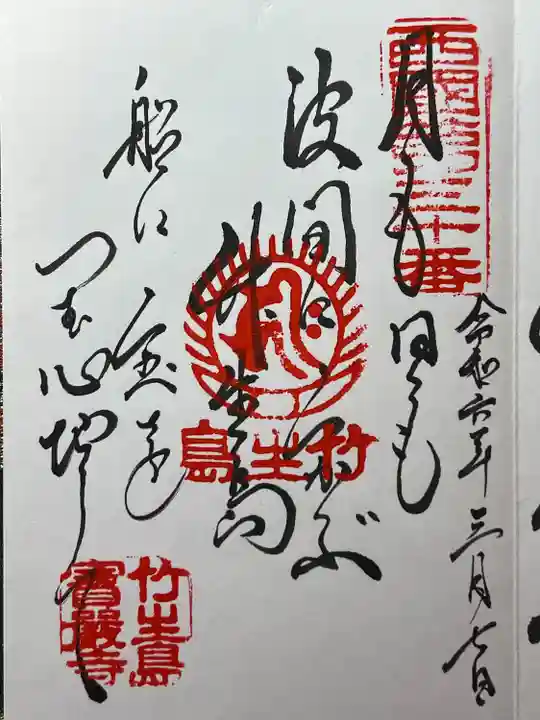 西國第三十番
令和六年三月七日
月も日も
波間にうかぶ
竹生島
竹生島
船に宝を
つむ心地して
竹生島
寶嚴寺